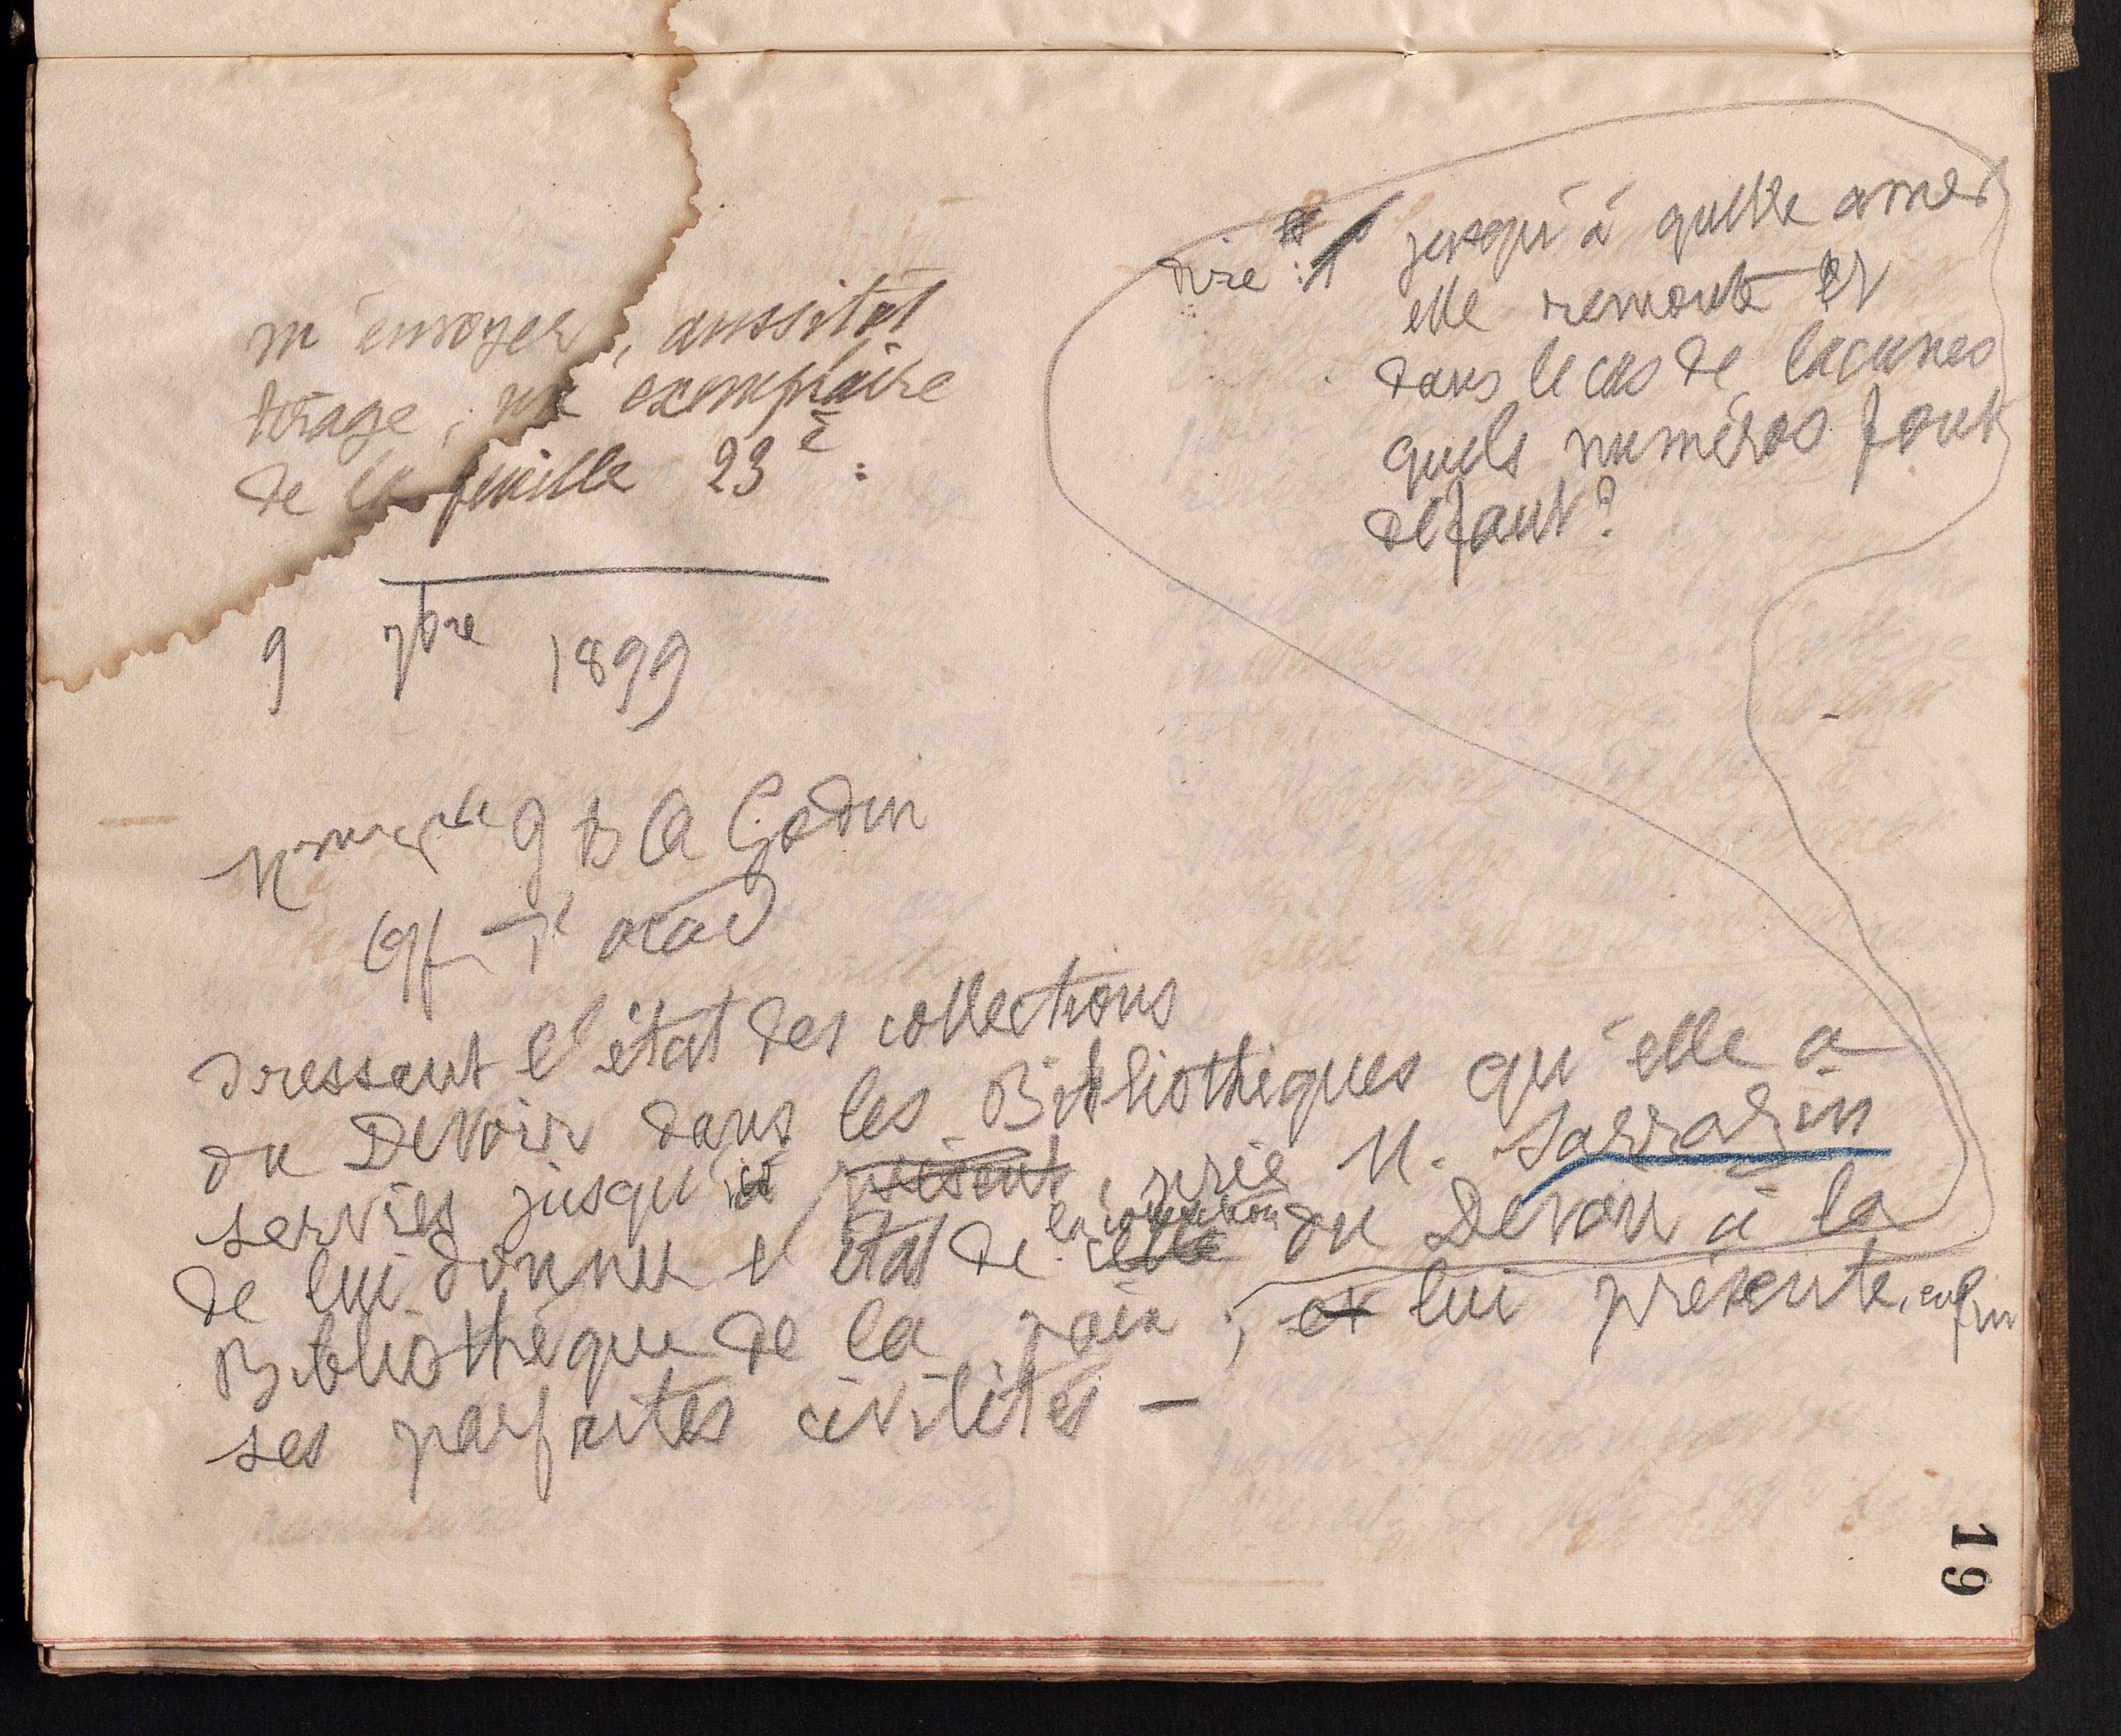 m'envoyer, aussitôt
tirage, un exemplaire
de la feuille 23è :
9 7bre 1899
J B A Godin
dressant l'état des collections
du Devoir dans les Bibliothèques qu'elle a
servies jusqu'ici présent, prie M. Sarrazin
de lui donner l'état de celle la collection du Devoir à la
Bibliothèque de la paix ; et lui présente, enfin
ses parfaites civilités —
dire : jusqu'à quelle année
elle remonte et
dans le cas de lacunes
quels numéros font
défaut ?
19